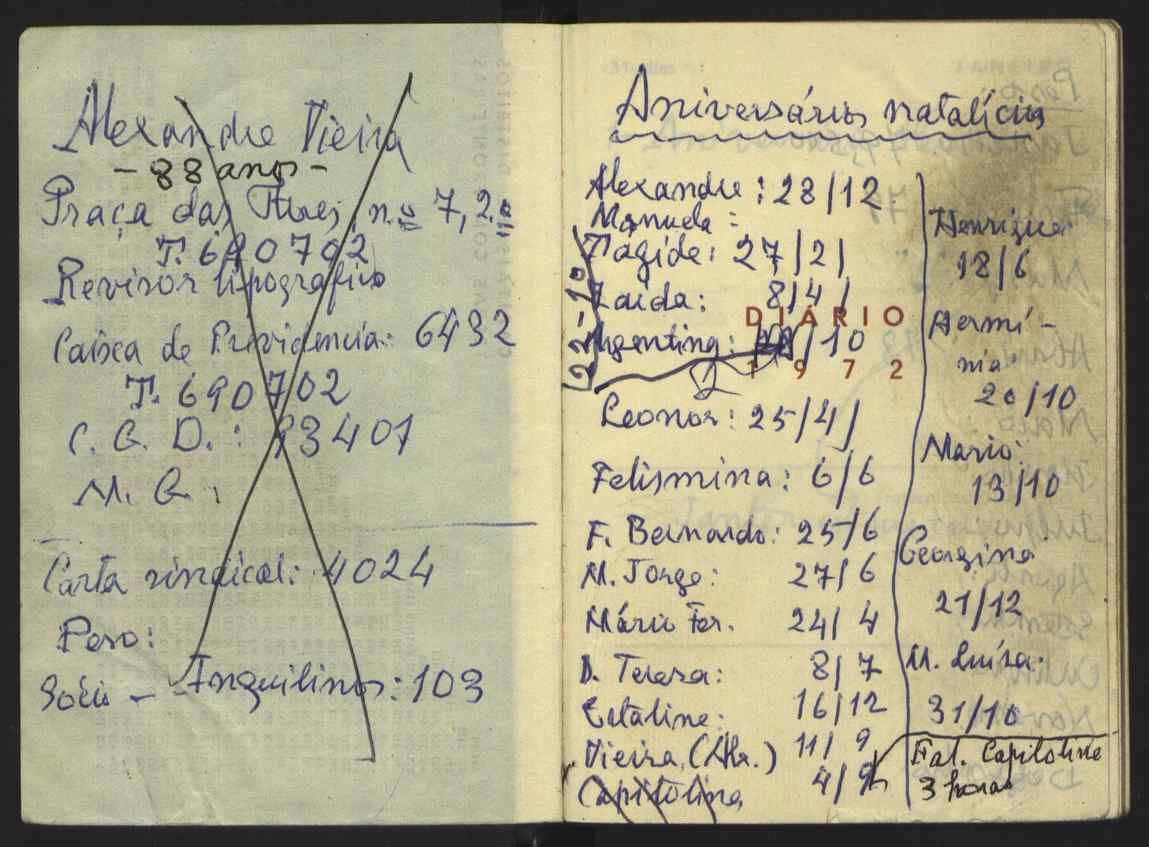 Alexandre Vieira
- 88 anos -
Praça das Flores, n.º 7, 2.º
T. 690702
Revisor tipográfico
Caixa de Previdencia: 6432
T. 690702
C. G. D.: 93401
M. G.:
Carta sindical: 4024
Peso:
Sócio - Inquilinos: 103
Aniversários natalícios
Alexandre: 28/12
Manuela:
Tágide: 27/2/
Zaida: 8/4/
DIÁRIO
Argentina: /10
1972
22-10
Leonor: 25/4/
Felismina: 6/6
F. Bernardo: 25/6
M. Jorge: 27/6
Mário Fer. 24/4
D. Teresa: 8/7
Estaline: 16/12
Vieira, (Alx.) 11/9
Capitolina, 4/9
Henrique
18/6
Hermí-
nia
20/10
Mario:
13/10
Georgina
21/12
M. Luísa:
31/10
Fal. Capitolina
3 horas